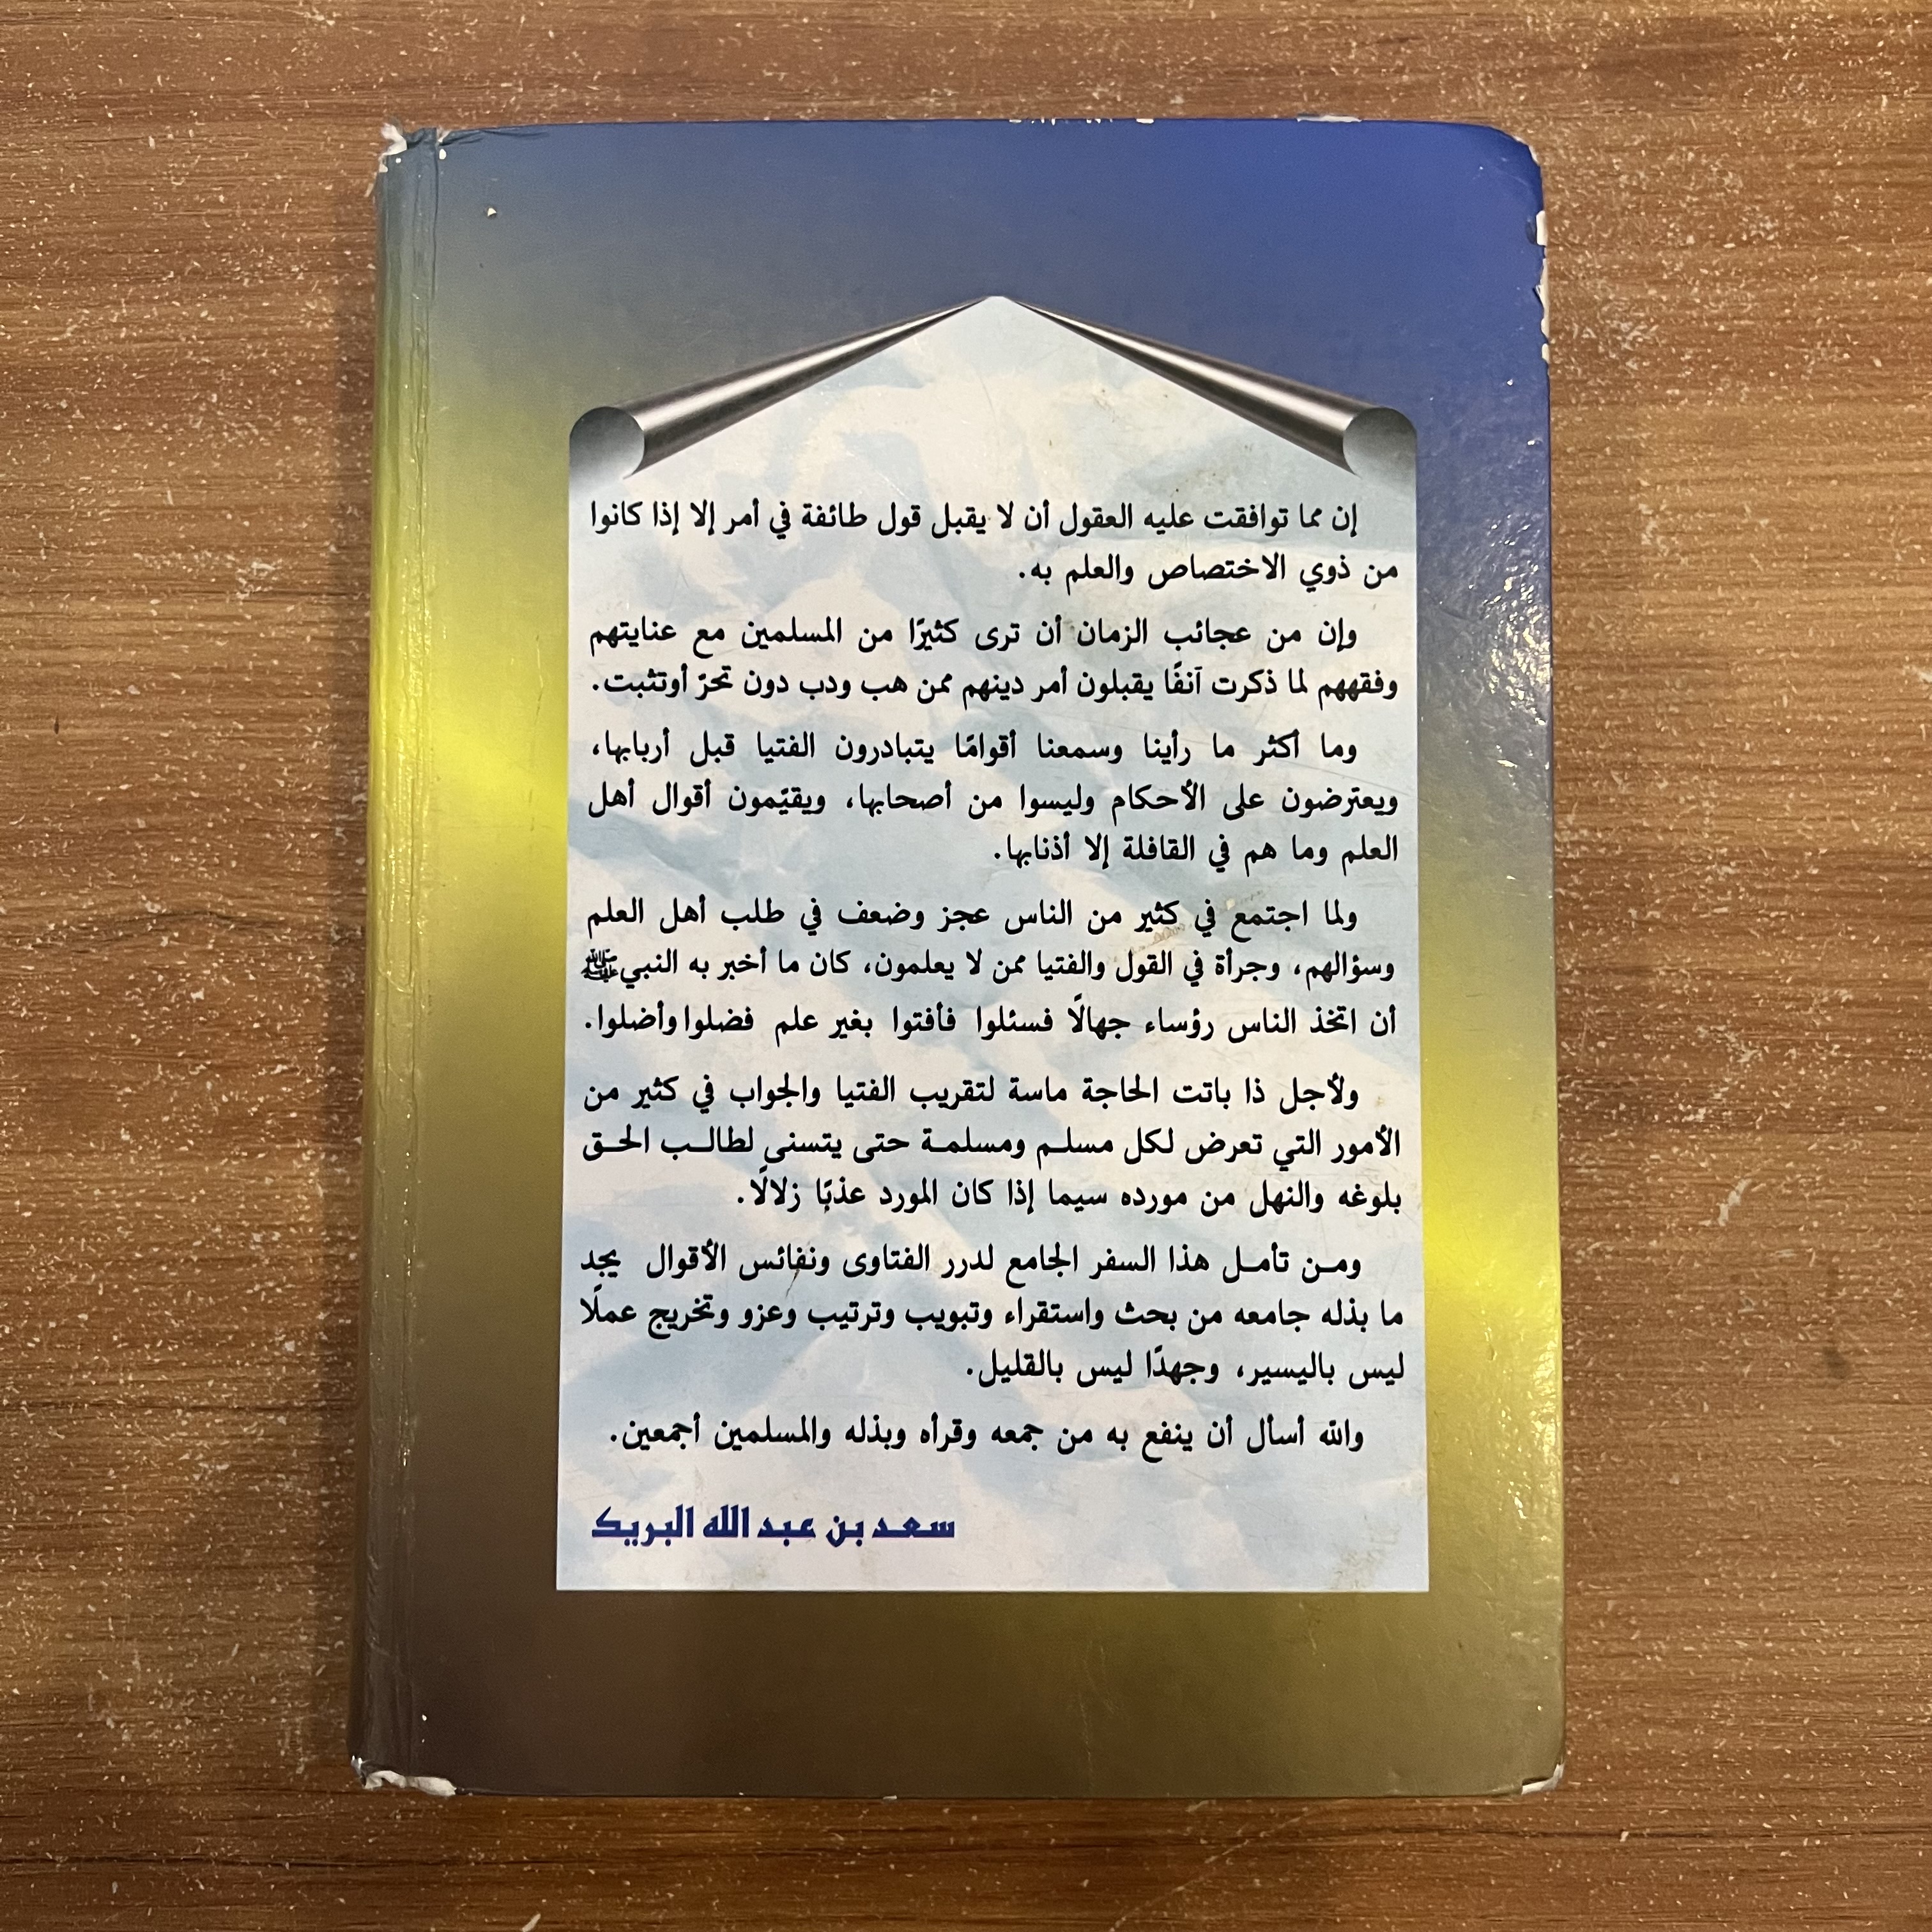 إن مما توافقت عليه العقول أن لا يقبل قول طائفة في أمر إلا إذا كانوا
من ذوي الاختصاص والعلم به.
وإن من عجائب الزمان أن ترى كثيرًا من المسلمين مع عنايتهم
وفقههم لما ذكرت آنفًا يقبلون أمر دينهم ممن هب ودب دون تحرّ أوتثبت.
وما أكثر ما رأينا وسمعنا أقوامًا يتبادرون الفتيا قبل أربابها،
ويعترضون على الأحكام وليسوا من أصحابها، ويقيّمون أقوال أهل
العلم وما هم في القافلة إلا أذنابها.
ولما اجتمع في كثير من الناس عجز وضعف في طلب أهل العلم
وسؤالهم، وجرأة في القول والفتيا ممن لا يعلمون، كان ما أخبر به النبي ﷺ
أن اتخذ الناس رؤساء جهالًا فسئلوا فأفتوا بغير علم فضلوا وأضلوا.
ولأجل ذا باتت الحاجة ماسة لتقريب الفتيا والجواب في كثير من
الأمور التي تعرض لكل مسلـم ومسلمـة حتى يتسنى لطالـب الحـق
بلوغه والنهل من مورده سيما إذا كان المورد عذبًا زلالًا.
ومـن تأمـل هذا السفر الجامع لدرر الفتاوى ونفائس الأقوال يجد
ما بذله جامعه من بحث واستقراء وتبويب وترتيب وعزو وتخريج عملًا
ليس باليسير، وجهدًا ليس بالقليل.
والله أسأل أن ينفع به من جمعه وقرأه وبذله والمسلمين أجمعين.
سعـد بن عبد الله البريك